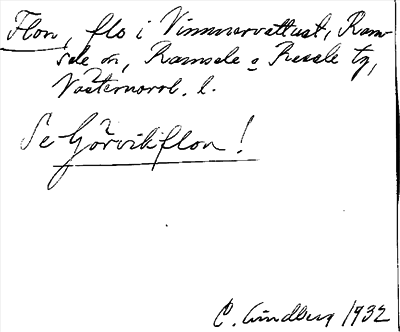 Flon, flo i Vimmervattnet, Ram-
sele sn, Ramsele o Resele tg,
Västernorrl. l.
Se Görvikflon!
C. Lindberg 1932